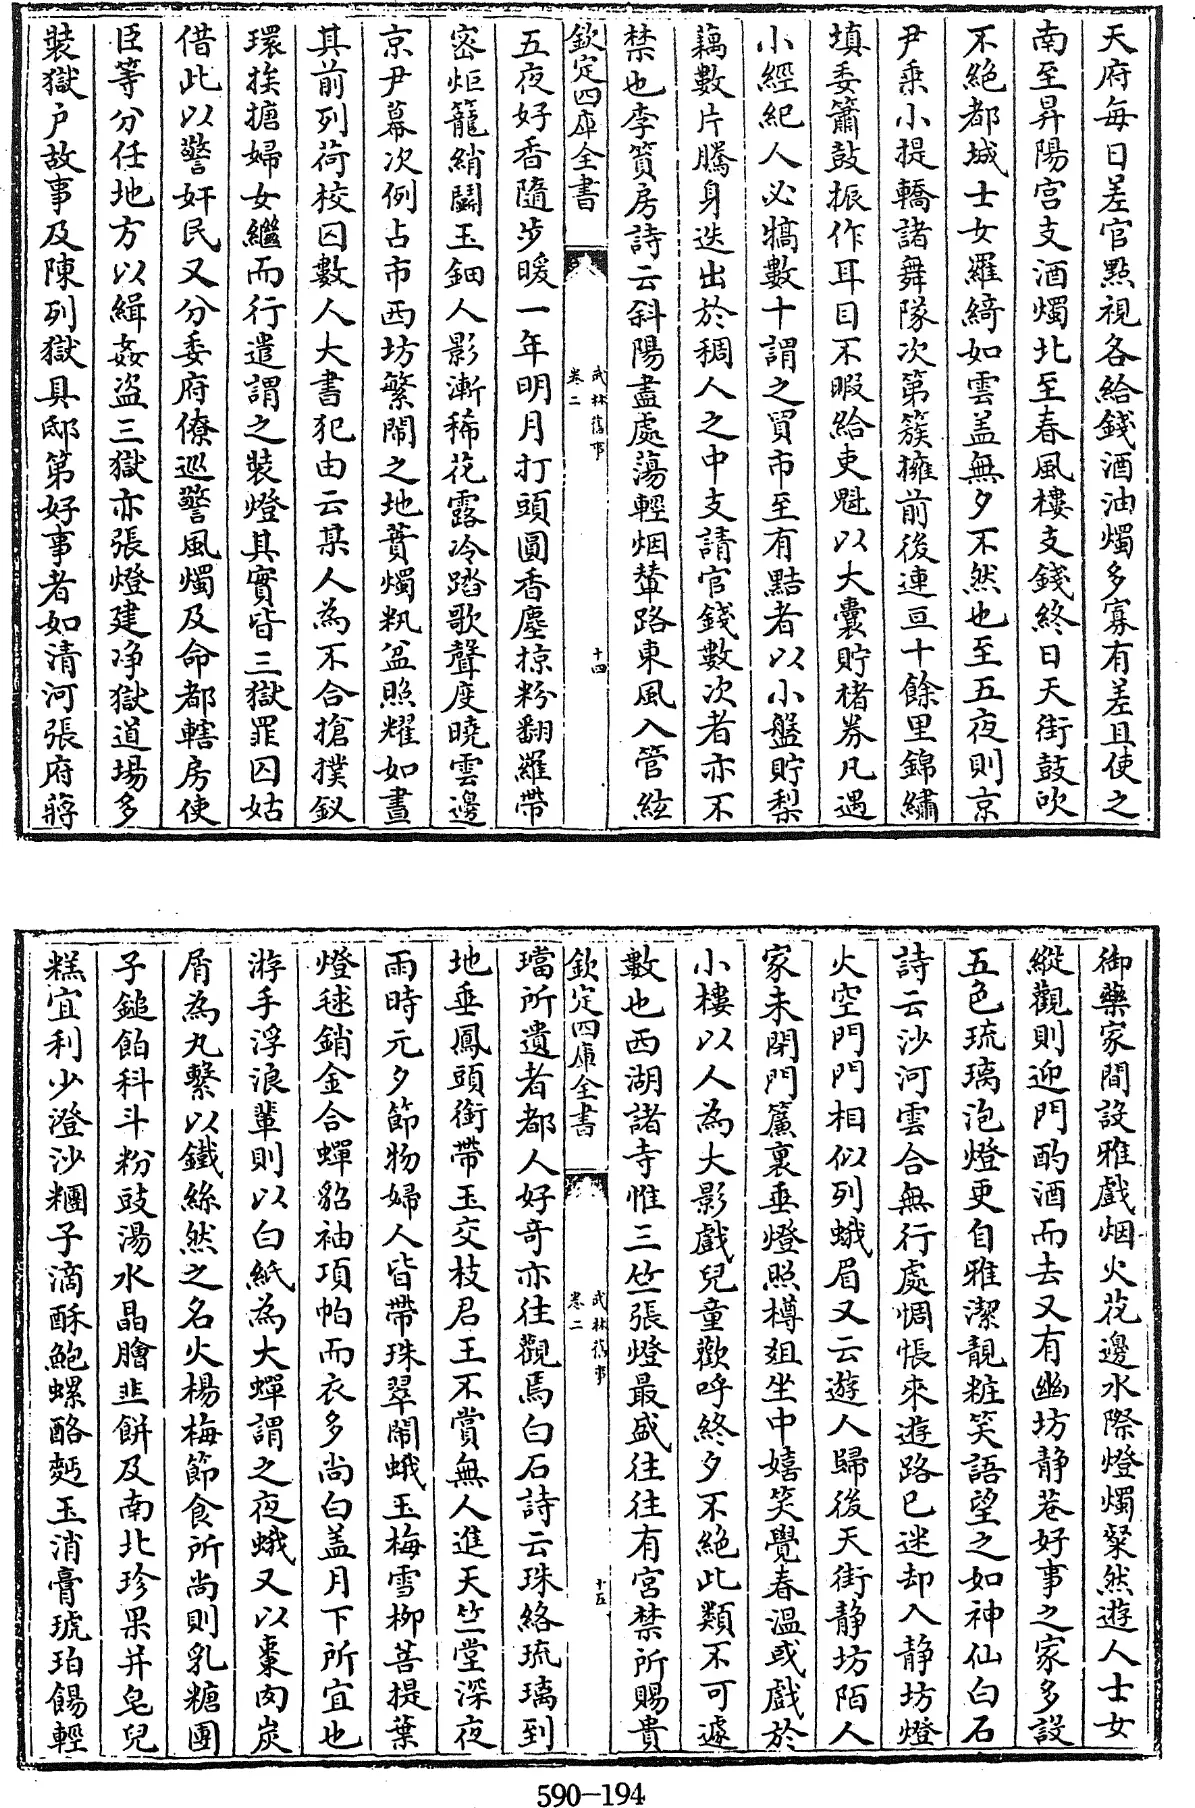 天府每日差官點視各給錢酒油燭多寡有差且使之
南至昇陽宮支酒燭北至春風樓支錢終日天街鼓吹
不絕都城士女羅綺如雲盖無夕不然也至五夜則京
尹乗小提轎諸舞隊次第簇擁前後連亘十餘里錦繡
填委簫鼓振作耳目不暇給吏魁以大囊貯楮券凡遇
小經紀人必犒數十謂之買市至有黠者以小盤貯梨
藕數片騰身迭出於稠人之中支請官錢數次者亦不
禁也李篔房詩云斜陽盡處蕩輕烟輦路東風入管絃
欽定四庫全書
武林舊事
卷二
十四
五夜好香隨步暖一年明月打頭圓香塵掠粉翻羅帶
宻炬籠綃鬬玉鈿人影漸稀花露冷踏歌聲度曉雲邊
京尹幕次例占市西坊繁閙之地蕡燭籸盆照耀如晝
其前列荷校囚數人大書犯由云某人為不合搶撲釵
環挨搪婦女繼而行遣謂之裝燈其實皆三獄罪囚姑
借此以警奸民又分委府僚巡警風燭及命都轄房使
臣等分任地方以緝姦盜三獄亦張燈建净獄道場多
裝獄户故事及陳列獄具邸第好事者如清河張府蔣
御藥家間設雅戲烟火花邊水際燈燭粲然遊人士女
縱觀則迎門酌酒而去又有幽坊靜巷好事之家多設
五色琉璃泡燈更自雅潔靚粧笑語望之如神仙白石
詩云沙河雲合無行處惆悵來遊路已迷却入靜坊燈
火空門門相似列蛾眉又云遊人歸後天街靜坊陌人
家未閉門簾裏垂燈照樽俎坐中嬉笑覺春溫或戲於
小樓以人為大影戲兒童歡呼終夕不絕此類不可遽
數也西湖諸寺惟三竺張燈最盛往往有宮禁所賜貴
欽定四庫全書
武林舊事
卷二
十五
璫所遺者都人好奇亦往觀焉白石詩云珠絡琉璃到
地垂鳳頭銜帶玉交枝君王不賞無人進天竺堂深夜
雨時元夕節物婦人皆帶珠翠鬧蛾玉梅雪柳菩提葉
燈毬銷金合蟬貂袖項帕而衣多尚白盖月下所宜也
游手浮浪輩則以白紙為大蟬謂之夜蛾又以棗肉炭
屑為丸繫以鐵絲然之名火楊梅節食所尚則乳糖圓
子䭔餡科斗粉豉湯水晶膾韭餅及南北珍果并皂兒
糕宜利少澄沙糰子滴酥鮑螺酪麪玉消膏琥珀餳輕
590-194